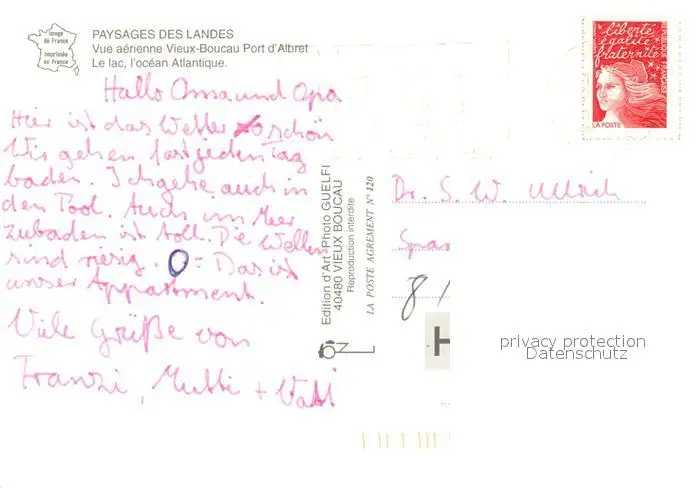 Image
de France
Imprimée
en France
PAYSAGES DES LANDES
Vue aérienne Vieux-Boucau Port d'Albret
Le lac, l'océan Atlantique.
Hallo Oma und Opa
Hier ist das Wetter so schön
Wir gehen fast jeden Tag
baden. Ich gehe auch in
den Pool. Auch im Meer
zubaden ist toll. Die Wellen
sind riesig. O = Das ist
unser Appartment.
Viele Grüße von
Franzi, Mutti + Vati
Edition d'Art Photo GUELFI
40480 VIEUX BOUCAU
Reproduction interdite
LA POSTE AGREMENT N° 120
liberté
égalité
fraternité
RÉPUBLIQUE FRANÇAISE
LA POSTE
Dr. S. W. Ullrich
8
H
privacy protection
Datenschutz